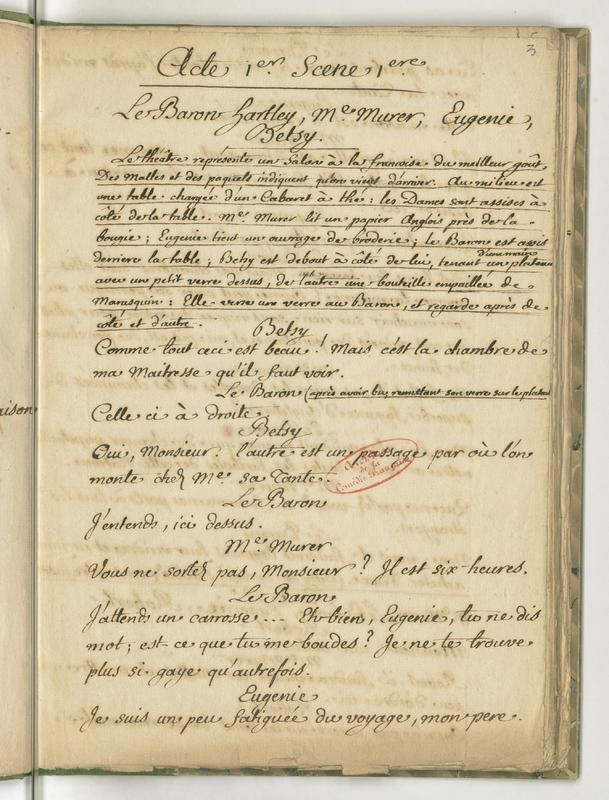 3
Acte 1er Scene 1ere
Le Baron hartley, Me Murer, Eugenie,
Betsy.
Le théâtre représente un Salon à la françoise du meilleur goût,
Des Malles et des paquets indiquent qu'on vient d'arriver. Au milieu est
une table chargée d'un Cabaret à thé : les Dames sont assises à
côté de la table. Me Murer lit un papier Anglois près de la
bougie ; Eugenie tient un ouvrage de broderie ; le Baron est assis
derriere la table ; Betsy est debout à côté de lui, tenant d'une main un plateau
avec un petit verre dessus, de l'autre une bouteille empaillée de
Marasquin : Elle verse un verre au Baron, et regarde après de
côté et d'autre.
Betsy
Comme tout ceci est beau ! Mais c'est la chambre de
ma Maitresse qu'il faut voir.
Le Baron (après avoir bu, remettant son verre sur le plateau
Celle ci à droite
Betsy
Oui, Monsieur. l'autre est un passage par où l'on
monte chez Me sa Tante.
de la
Comédie Française
Le Baron
J'entends, ici dessus.
Me Murer
Vous ne sortez pas, Monsieur ? Il est six heures.
Le Baron
J'attends un carrosse ... Eh bien, Eugenie, tu ne dis
mot ; est ce que tu me boudes ? Je ne te trouve
plus si gaye qu'autrefois.
Eugenie
Je suis un peu fatiguée du voyage, mon pere.